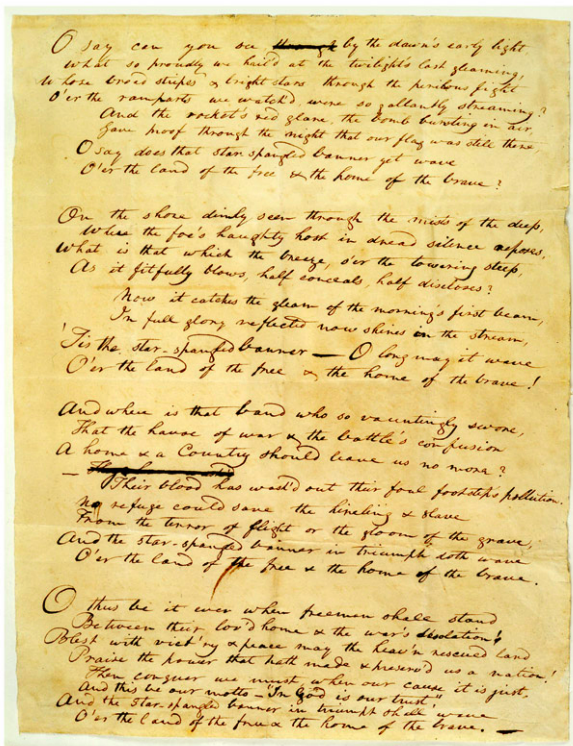 O say can you see ~~through~~ by the dawn's early light
What so proudly we hail'd at the twilight's last gleaming,
Whose broad stripes & bright stars through the perilous fight
O'er the ramparts we watch'd, were so gallantly streaming?
And the rocket's red glare, the bomb bursting in air,
Gave proof through the night that our flag was still there
O say does that star-spangled banner yet wave
O'er the land of the free & the home of the brave?
On the shore dimly seen through the mists of the deep,
Where the foe's haughty host in dread silence reposes,
What is that which the breeze, o'er the towering steep,
As it fitfully blows, half conceals, half discloses?
Now it catches the gleam of the morning's first beam,
In full glory reflected now shines in the stream,
'Tis the star-spangled banner — O long may it wave
O'er the land of the free & the home of the brave!
And where is that band who so vauntingly swore,
That the havoc of war & the battle's confusion
A home & a Country should leave us no more?
—
Their blood has wash'd out their foul footstep's pollution.
No refuge could save the hireling & slave
From the terror of flight or the gloom of the grave,
And the star-spangled banner in triumph doth wave
O'er the land of the free & the home of the brave.
O thus be it ever when freemen shall stand
Between their lov'd home & the war's desolation!
Blest with vict'ry & peace may the heav'n rescued land
Praise the power that hath made & preserv'd us a nation!
Then conquer we must, when our cause it is just,
And this be our motto — "In God is our trust,"
And the star-spangled banner in triumph shall wave
O'er the land of the free & the home of the brave. —